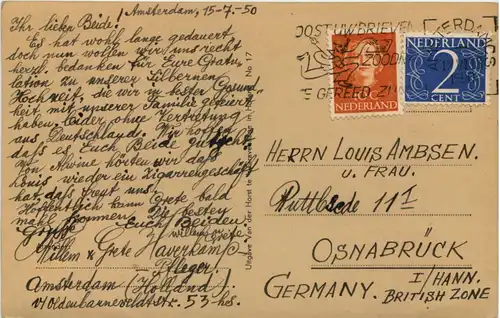 Amsterdam, 15-7.-50
Ihr lieben Beide!
Es hat wohl lange gedauert
doch nun wollen wir uns recht
herzl. bedanken für Eure Gratu
lation zu unserer Silbernen
Hochzeit, die wir in bester Gesund
heit mit unserer Familie gefeiert
haben, leider ohne Vertretung
aus Deutschland. Wir hoffen
daß es Euch Beide gut geht
Von Alwine hörten wir daß
König wieder ein Zigarrengeschäft
hat, das freut uns.
Hoffentlich kann Grete bald
mal kommen. Die besten
Grüße Euch Beiden
Willem & Grete Haverkamp
Pfleger.
Amsterdam (Holland).
v/Oldenbarneveldtstr. 53-hs.
Uitgave Van der Horst te Amsterdam No 17
POST UW BRIEVEN
NEDERLAND
2
CENT
NEDERLAND
HERRN LOUIS AMBSEN.
U. FRAU.
OSNABRÜCK
I/HANN.
GERMANY. BRITISH ZONE